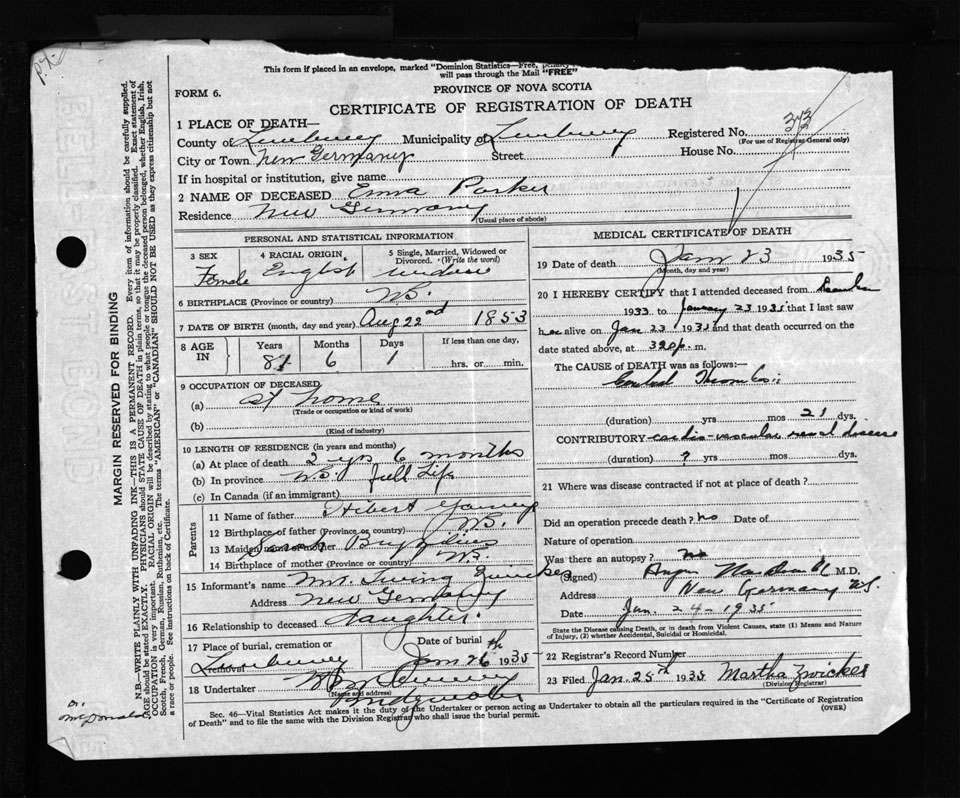 P.42
This form if placed in an envelope, marked "Dominion Statistics—Free, penalty
will pass through the Mail "FREE"
PROVINCE OF NOVA SCOTIA
FORM 6.
CERTIFICATE OF REGISTRATION OF DEATH
1 PLACE OF DEATH—
County of Lunenburg Municipality of Lunenburg Registered No. 33
(For use of Registrar General only)
City or Town New Germany Street House No.
If in hospital or institution, give name
2 NAME OF DECEASED Emma Parker
Residence New Germany
(Usual place of abode)
PERSONAL AND STATISTICAL INFORMATION
3 SEX 4 RACIAL ORIGIN 5 Single, Married, Widowed or Divorced. (Write the word)
Female English widow
6 BIRTHPLACE (Province or country) N.S.
7 DATE OF BIRTH (month, day and year) Aug 22nd 1853
8 AGE IN Years Months Days If less than one day,
81 6 1 hrs. or min.
9 OCCUPATION OF DECEASED
(a) at home
(Trade or occupation or kind of work)
(b)
(Kind of industry)
10 LENGTH OF RESIDENCE (in years and months)
(a) At place of death 2 yrs 6 months
(b) In province N.S. full life
(c) In Canada (if an immigrant)
Parents
11 Name of father
12 Birthplace of father (Province or country) N.S.
13 Maiden name of mother Sarah
14 Birthplace of mother (Province or country) N.S.
15 Informant's name Mrs. Irving Zwicker
Address New Germany
16 Relationship to deceased daughter
17 Place of burial, cremation or removal Date of burial
Lunenburg Jan 26th 1935
18 Undertaker
(Name and address)
Bridgewater
MEDICAL CERTIFICATE OF DEATH
19 Date of death Jan 23 1935
(Month, day and year)
20 I HEREBY CERTIFY that I attended deceased from December
1933 to January 23 1935 that I last saw
her alive on Jan 23 1935 and that death occurred on the
date stated above, at 320 p. m.
The CAUSE of DEATH was as follows:—
Cerebral Thrombosis
(duration) yrs mos 21 dys.
CONTRIBUTORY cardio-vascular renal disease
(duration) ? yrs. mos. dys.
21 Where was disease contracted if not at place of death?
Did an operation precede death? no Date of
Nature of operation
Was there an autopsy? no
(Signed) Angus MacDonald M.D.
Address New Germany N.S.
Date Jan. 24 - 1935
State the Disease causing Death, or in death from Violent Causes, state (1) Means and Nature
of Injury, (2) whether Accidental, Suicidal or Homicidal.
22 Registrar's Record Number
23 Filed Jan. 25th 1935 Martha Zwicker
(Division Registrar)
Sec. 46—Vital Statistics Act makes it the duty of the Undertaker or person acting as Undertaker to obtain all the particulars required in the "Certificate of Registration
of Death" and to file the same with the Division Registrar who shall issue the burial permit. (OVER)
MARGIN RESERVED FOR BINDING
N.B.—WRITE PLAINLY WITH UNFADING INK—THIS IS A PERMANENT RECORD. Every item of information should be carefully supplied.
AGE should be stated EXACTLY. PHYSICIANS should STATE CAUSE OF DEATH in plain terms, so that it may be properly classified. Exact statement of
OCCUPATION is very important. RACIAL ORIGIN will be described by stating to what people or tongue the deceased person belonged, whether English, Irish,
Scotch, French, German, Russian, Ruthenian, etc. The terms "AMERICAN" or "CANADIAN" SHOULD NOT BE USED as they express citizenship but not
a race or people. See instructions on back of Certificate.
Dr.
McDonald